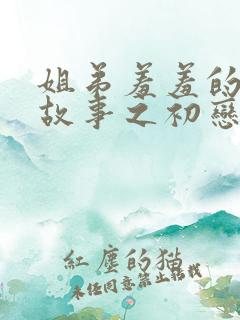 姐弟羞羞的
故事之初戀
紅塵的貓
未經同意禁止轉載